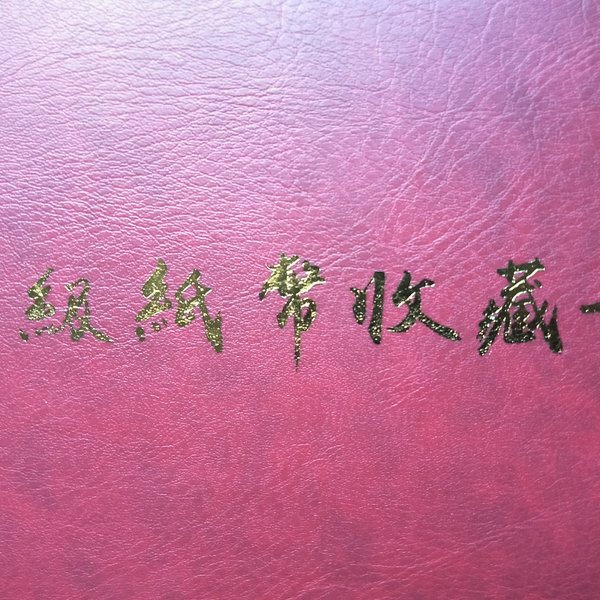 級紙幣收藏